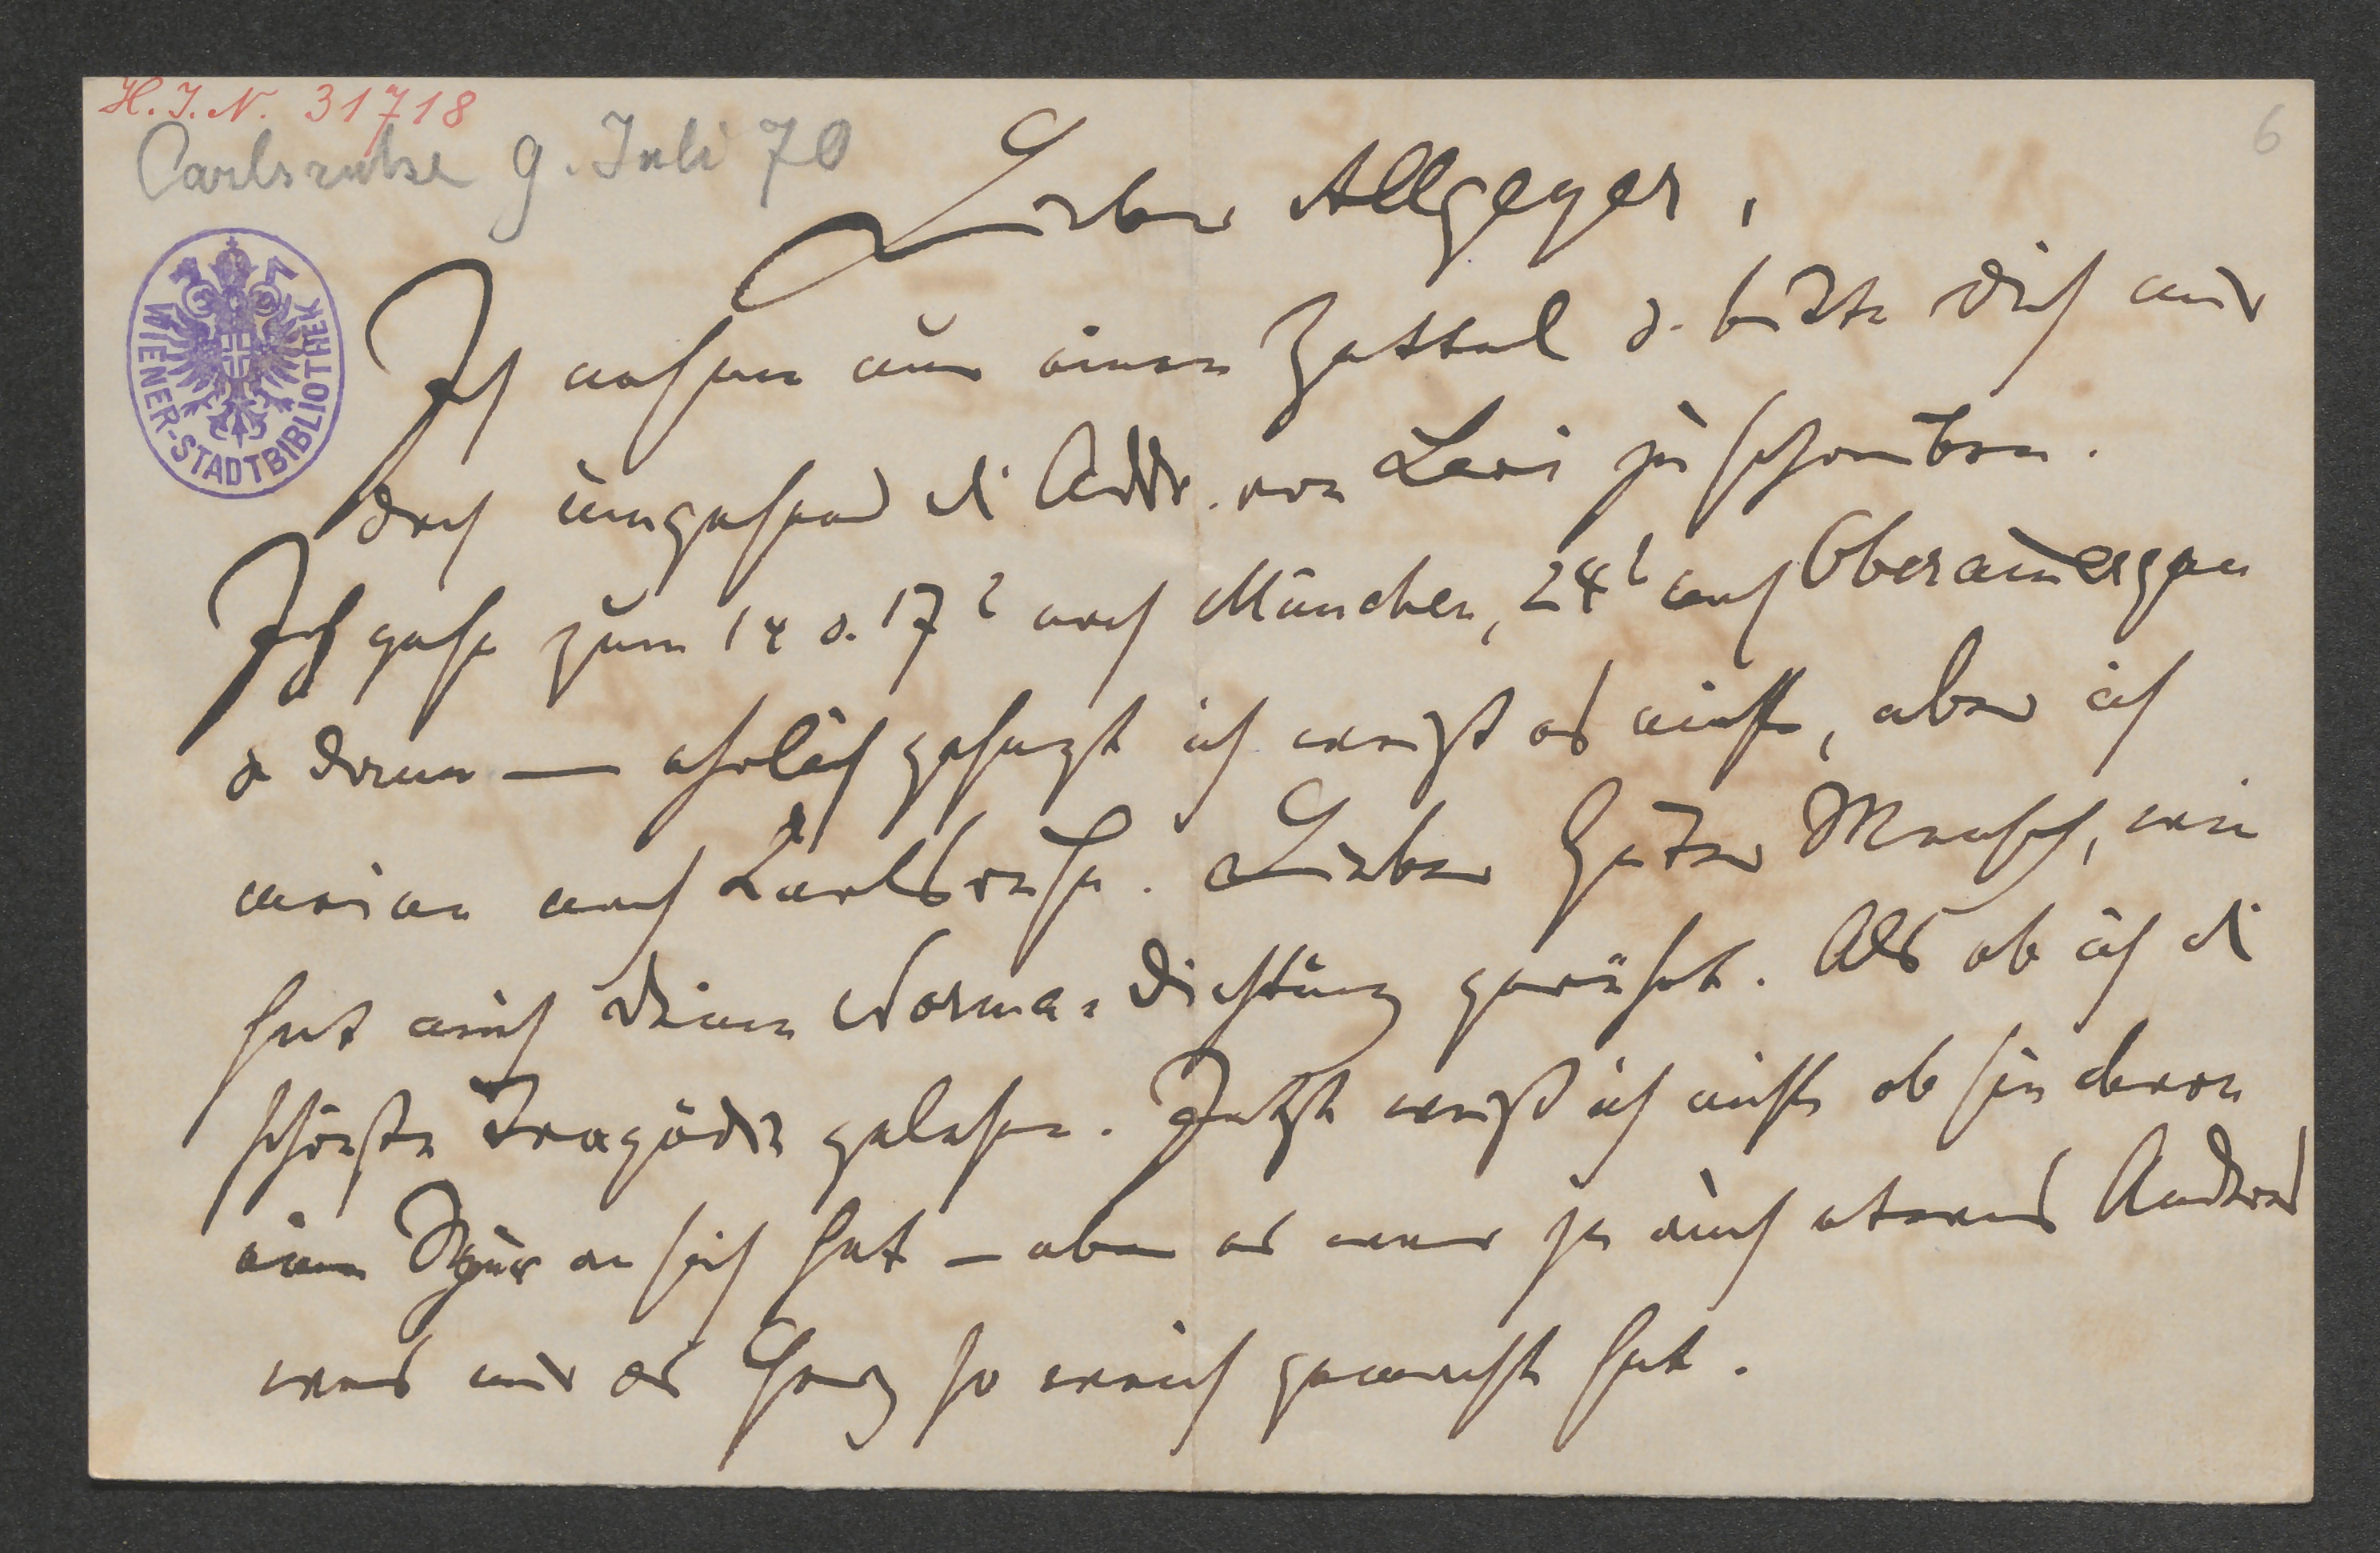 H. I. N. 31718
6
Carlsruhe 9. Juli 70
WIENER-STADTBIBLIOTHEK
Lieber Allgeyer,
Ich nehme nur einen Zettel u. bitte Dich mir
doch umgehend die Addr. von Levi zu schreiben.
Ich gehe zum 14 u. 17t nach München, 24t nach Oberammergau
u dann — ehrlich gesagt ich weiß es nicht, aber ich
meine nach Karlsruhe. Lieber Guter Mensch, wie
hat mich Deine Norma-Dichtung gerührt. Als ob ich die
schönste Tragödie gelesen. Jetzt weiß ich nicht ob sie davon
eine Spur an sich hat – aber es war ja auch etwas Anderes
was mir das Herz so weich gemacht hat.